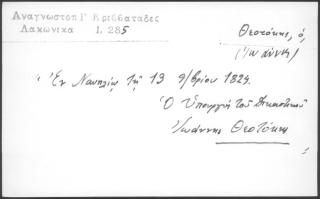 Αναγνωστοπ Γ Κρεββαταδες
Λακωνικα 1, 285
Θεοτόκης, ὁ,
(Ἰωάννης)
Ἐν Ναυπλίῳ τῇ 13 9/βρίου 1824.
Ὁ Ὑπουργὸς τοῦ Δικαστικοῦ
Ἰωάννης Θεοτόκης